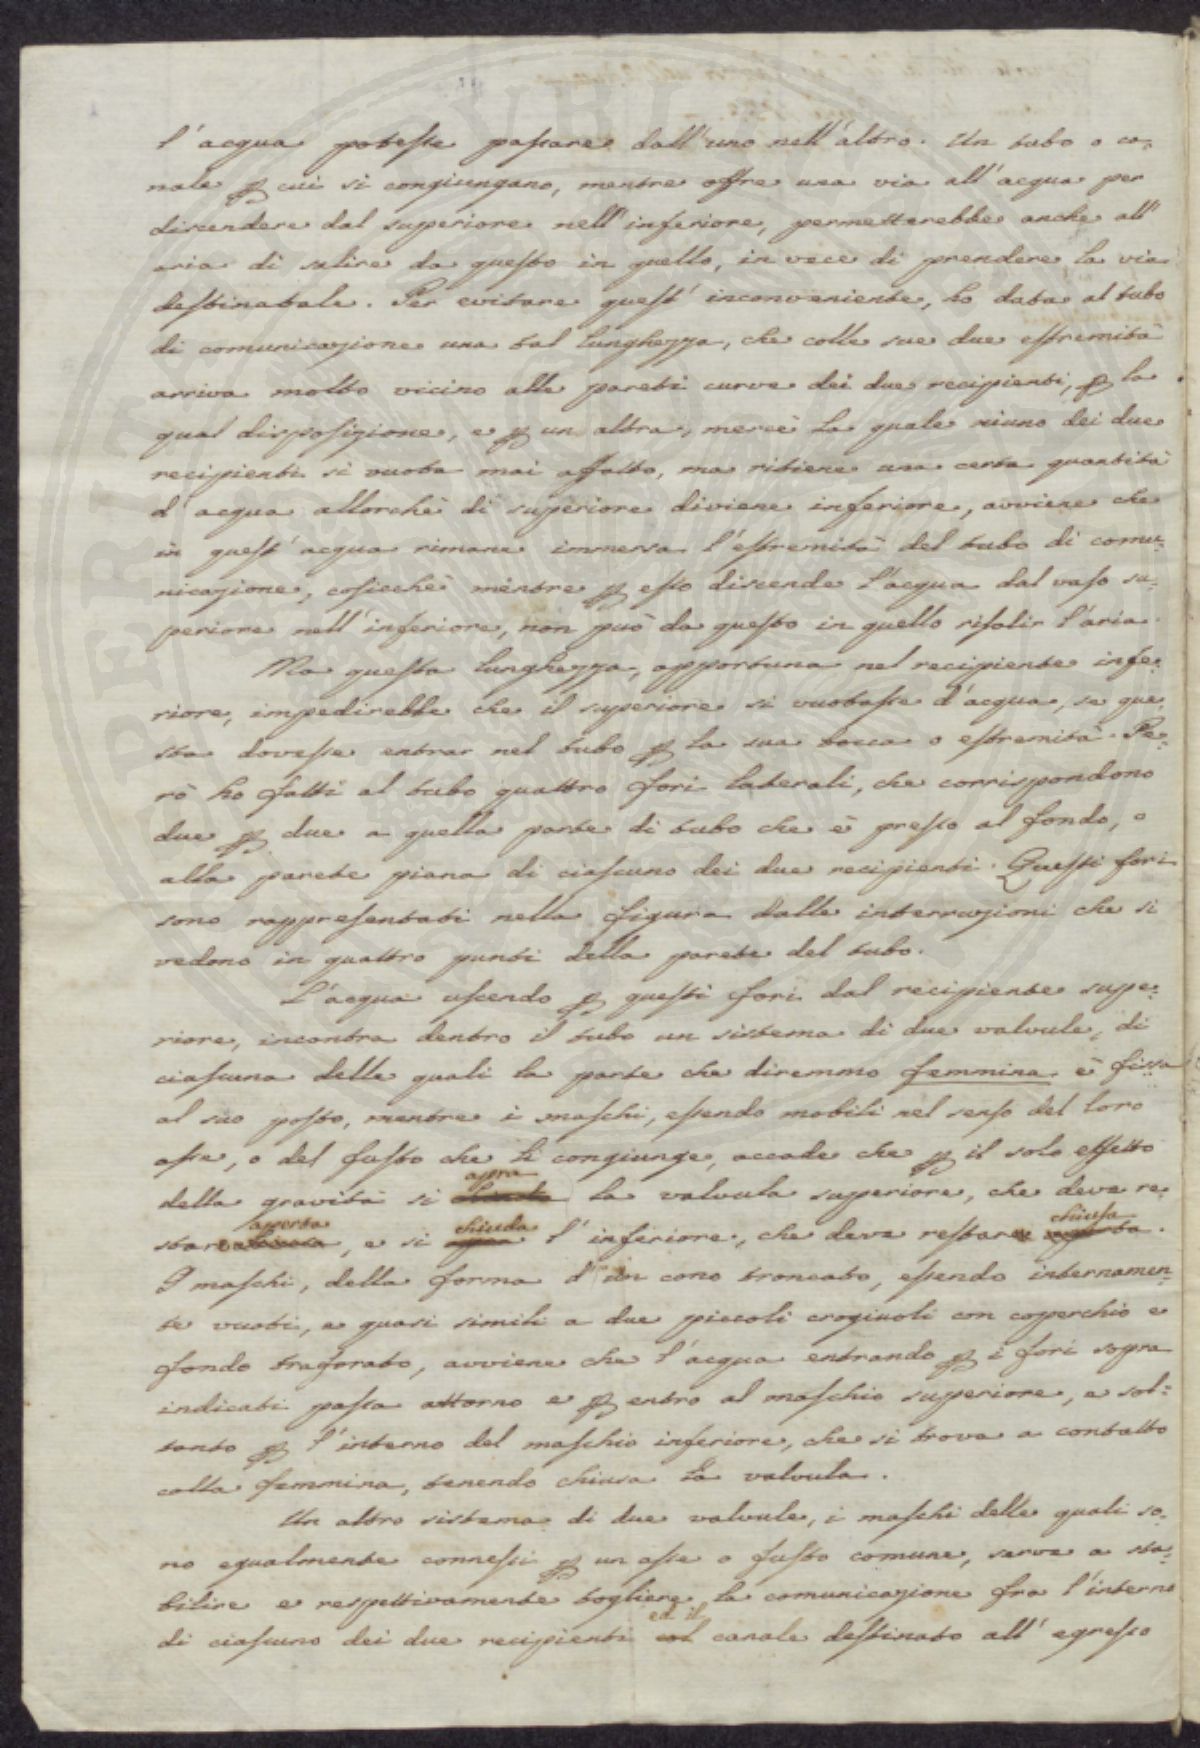 l'acqua potesse passare dall'uno nell'altro. Un tubo o ca=
nale p cui si congiungano, mentre offre una via all'acqua per
discendere dal superiore nell'inferiore, permetterebbe anche all'
aria di salire da questo in quello, in vece di prendere la via
destinatale. Per evitare quest'inconveniente, ho data al tubo
di comunicazione una tal lunghezza, che colle sue due estremità
arriva molto vicino alle pareti curve dei due recipienti, p la
qual disposizione, e p un altra, mercè la quale niuno dei due
recipienti si vuota mai affatto, ma ritiene una certa quantità
d'acqua allorchè di superiore diviene inferiore, avviene che
in quest'acqua rimane immersa l'estremità del tubo di comu=
nicazione, cosicchè mentre p esso discende l'acqua dal vaso su=
periore nell'inferiore, non può da questo in quello risalir l'aria.
Ma questa lunghezza, opportuna nel recipiente infe=
riore, impedirebbe che il superiore si vuotasse d'acqua, se que=
sta dovesse entrar nel tubo p la sua bocca o estremità. Pe=
rò ho fatti al tubo quattro fori laterali, che corrispondono
due p due a quella parte di tubo che è presso al fondo, o
alla parete piana di ciascuno dei due recipienti. Questi fori
sono rappresentati nella figura dalle interruzioni che si
vedono in quattro punti della parete del tubo.
L'acqua uscendo p questi fori dal recipiente supe=
riore, incontra dentro il tubo un sistema di due valvule, di
ciascuna delle quali la parte che diremmo femmina è fissa
al suo posto, mentre i maschi, essendo mobili nel senso del loro
asse, o del fusto che li congiunge, accade che p il solo effetto
apra
della gravità si la valvula superiore, che deve re=
aperta chiuda chiusa
stare , e si apra l'inferiore, che deve restare aperta.
I maschi, della forma d'un cono troncato, essendo internamen=
te vuoti, e quasi simili a due piccoli crogiuoli con coperchio e
fondo traforato, avviene che l'acqua entrando p i fori sopra
indicati passa attorno e p entro al maschio superiore, e sol=
tanto p l'interno del maschio inferiore, che si trova a contatto
colla femmina, tenendo chiusa la valvula.
Un altro sistema di due valvule, i maschi delle quali so=
no egualmente connessi p un asse o fusto comune, serve a sta=
bilire e respettivamente togliere la comunicazione fra l'interno
ed il
di ciascuno dei due recipienti col canale destinato all'egresso